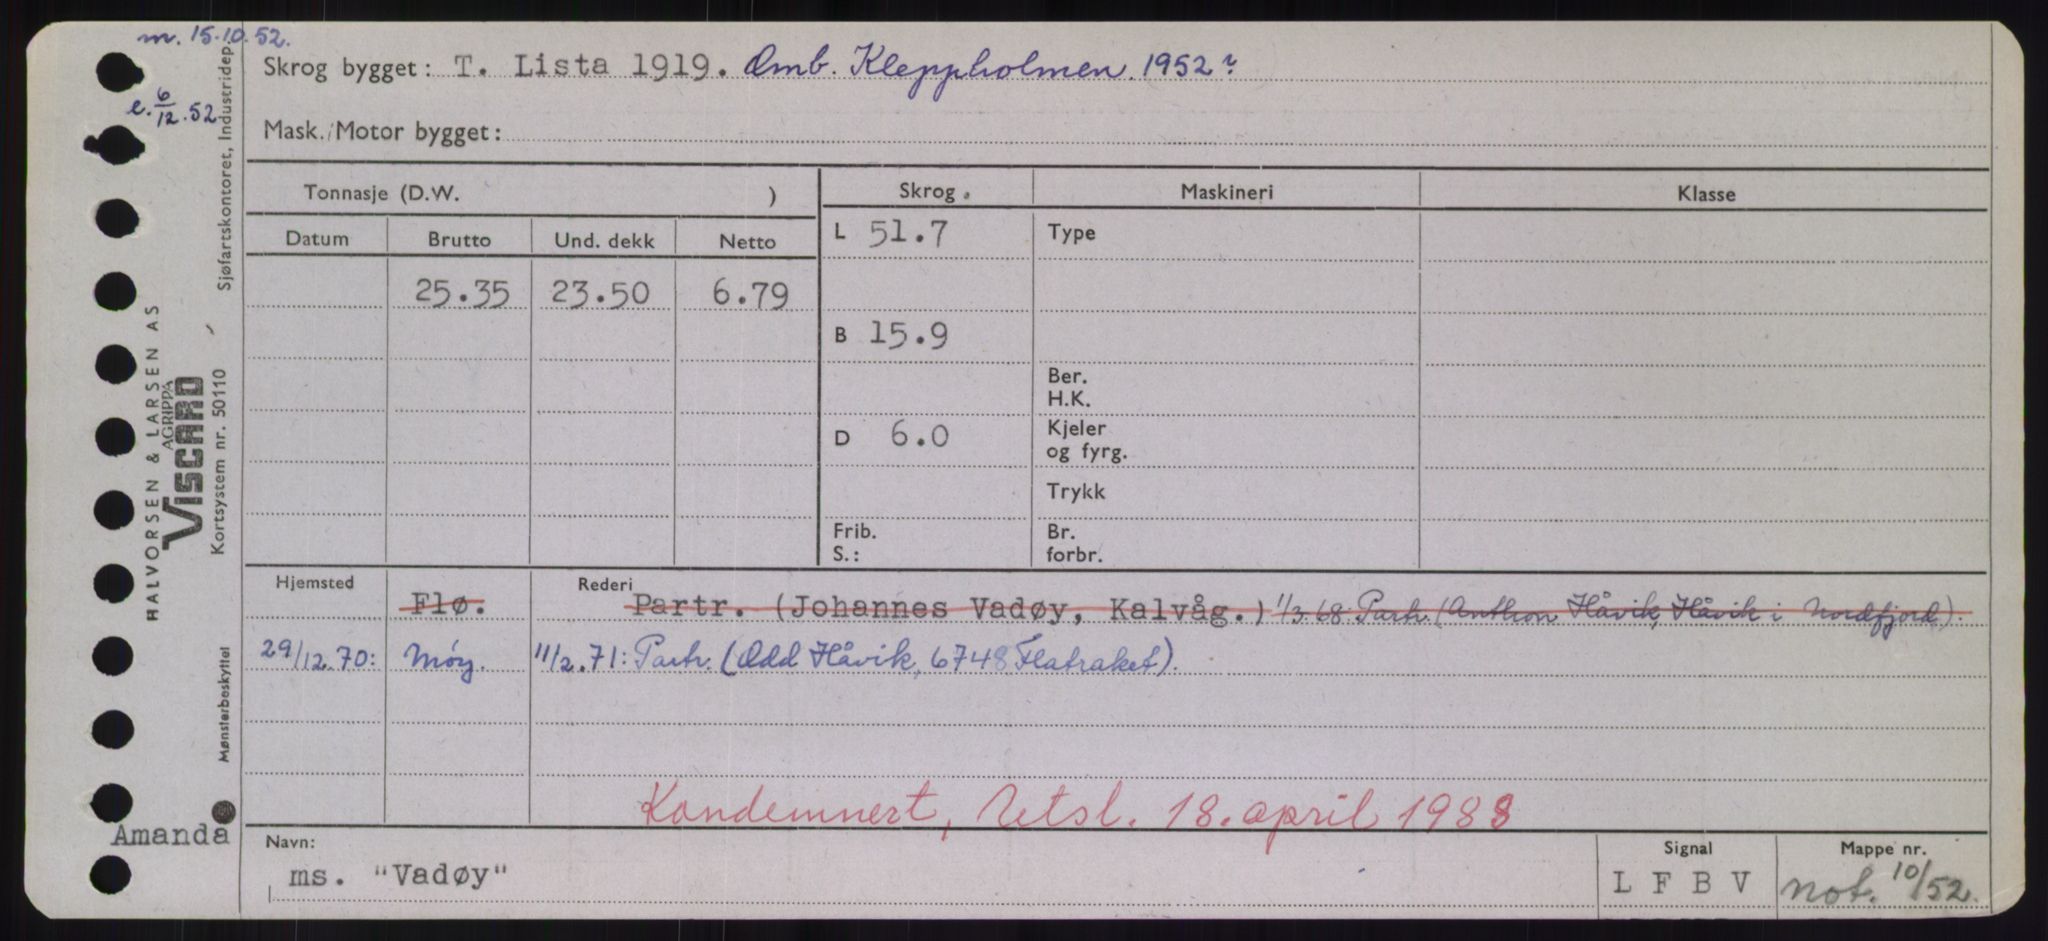 m. 15.10.52.
e. 6/12.52
Skrog bygget: T. Lista 1919. Omb. Kleppholmen 1952?
Mask./Motor bygget:
Tonnasje (D.W. )
Skrog.
Maskineri
Klasse
Datum Brutto Und. dekk Netto
25.35 23.50 6.79
L 51.7
B 15.9
D 6.0
Frib.
S.:
Type
Ber.
H.K.
Kjeler
og fyrg.
Trykk
Br.
forbr.
Hjemsted Rederi
Flø. Partr. (Johannes Vadøy, Kalvåg.) 1/3.68: Partr. (Anthon Håvik, Håvik i Nordfjord).
29/12.70: Møy. 11/2.71: Partr. (Odd Håvik, 6748 Flatraket).
Kondemnert, Utsl. 18. april 1988
Navn: ms. "Vadøy"
Signal L F B V
Mappe nr. not. 10/52.
Amanda
Sjøfartskontoret, Industridep.
HALVORSEN & LARSEN AS
AGRIPPA
VISCARD
Kortsystem nr. 50110
Mønsterbeskyttet